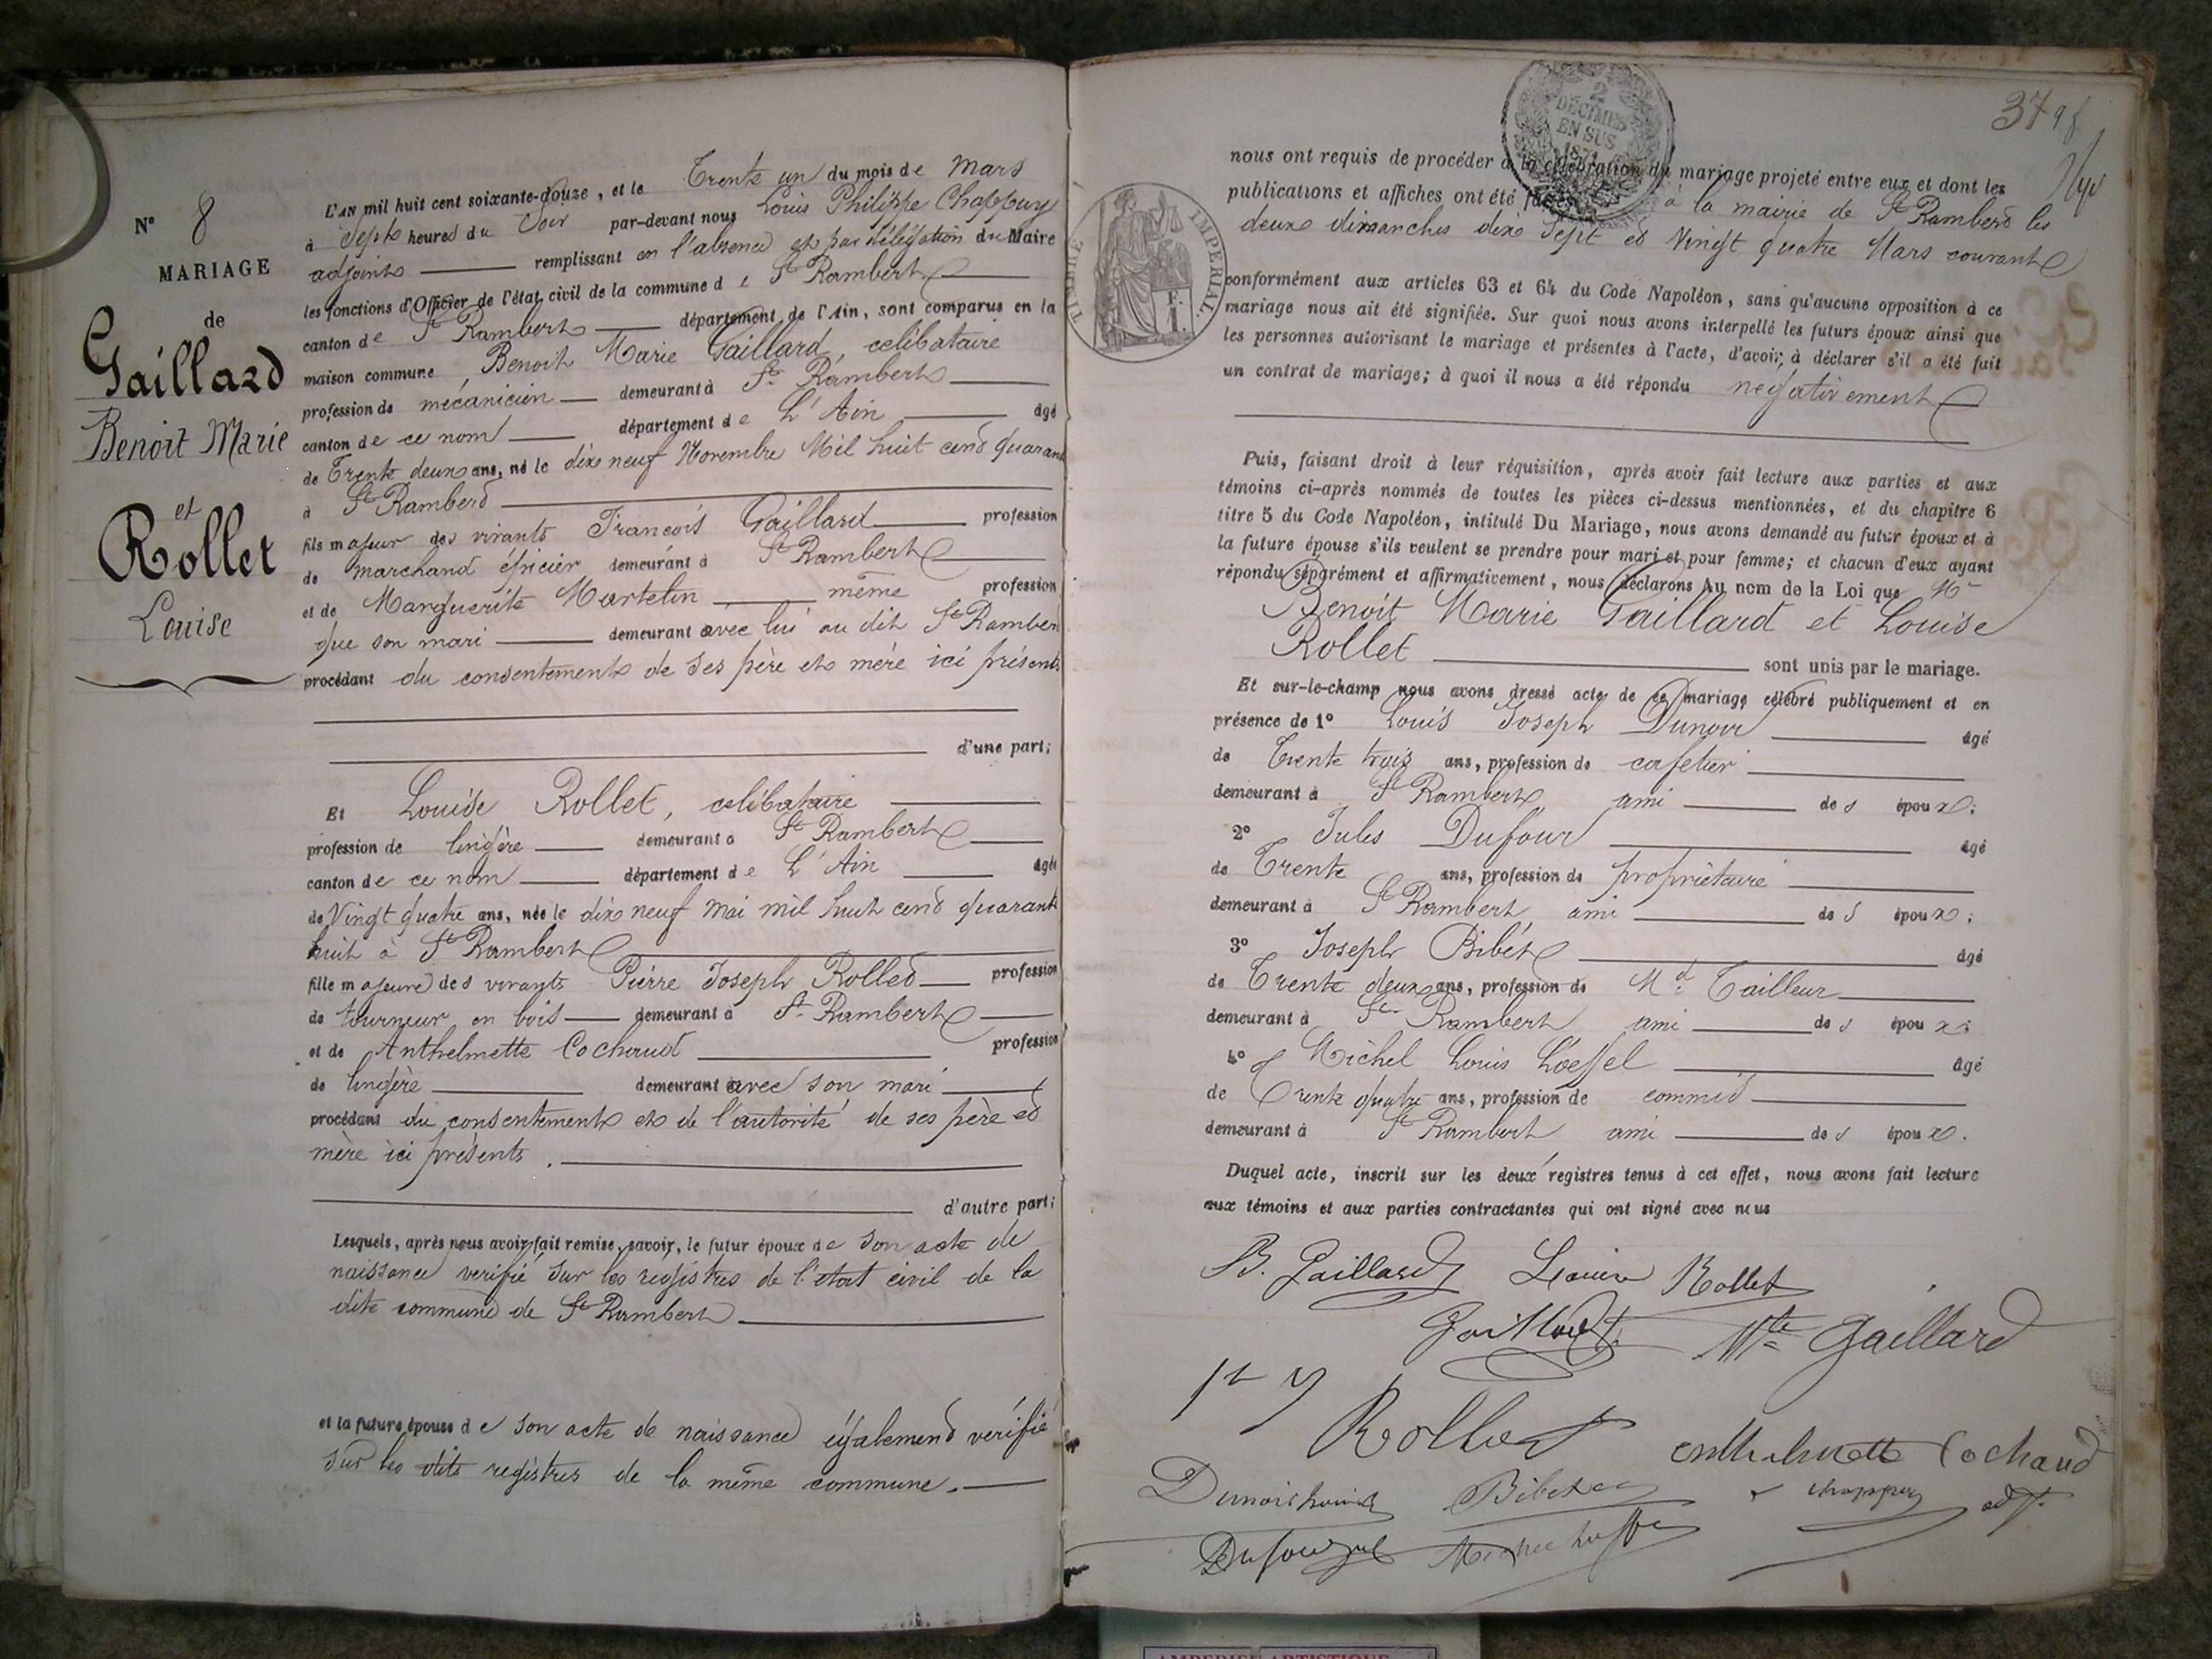 N° 8
MARIAGE
de
Gaillard
Benoit Marie
et
Rollet
Louise
L'AN mil huit cent soixante-douze, et le Trente un du mois de Mars
à Sept heures du Soir par-devant nous Louis Philippe Chappuy
adjoint remplissant en l'absence et par délégation du Maire
les fonctions d'Officier de l'état civil de la commune de St Rambert
canton de St Rambert département de l'Ain, sont comparus en la
maison commune Benoit Marie Gaillard, celibataire
profession de mécanicien demeurant à St Rambert
canton de ce nom département de L'Ain âgé
de Trente deux ans, né le dix neuf Novembre Mil huit cent quarante
à St Rambert
fils majeur des vivants Francois Gaillard profession
de marchand épicier demeurant à St Rambert
et de Marguerite Martelin même profession
que son mari demeurant avec lui au dit St Rambert
procédant du consentement de ses père et mère ici présents
d'une part;
Et Louise Rollet, celibataire
profession de lingère demeurant à St Rambert
canton de ce nom département de L'Ain âgée
de Vingt quatre ans, née le dix neuf mai mil huit cent quarante
huit à St Rambert
fille majeure des vivants Pierre Joseph Rollet profession
de tourneur en bois demeurant à St Rambert
et de Anthelmette Cochaud profession
de lingère demeurant avec son mari
procédant du consentement et de l'autorité de ses père et
mère ici présents.
d'autre part;
Lesquels, après nous avoir fait remise, savoir, le futur époux de son acte de
naissance verifié sur les registres de l'etat civil de la
dite commune de St Rambert
et la future épouse de son acte de naissance également vérifié
sur les dits registres de la même commune.
2
DÉCIMES
EN SUS
1871
TIMBRE IMPÉRIAL
37
nous ont requis de procéder à la célébration du mariage projeté entre eux et dont les
publications et affiches ont été faites à la mairie de St Rambert les
deux dimanches dix Sept et Vingt quatre Mars courant
conformément aux articles 63 et 64 du Code Napoléon, sans qu'aucune opposition à ce
mariage nous ait été signifiée. Sur quoi nous avons interpellé les futurs époux ainsi que
les personnes autorisant le mariage et présentes à l'acte, d'avoir à déclarer s'il a été fait
un contrat de mariage; à quoi il nous a été répondu négativement
Puis, faisant droit à leur réquisition, après avoir fait lecture aux parties et aux
témoins ci-après nommés de toutes les pièces ci-dessus mentionnées, et du chapitre 6
titre 5 du Code Napoléon, intitulé Du Mariage, nous avons demandé au futur époux et à
la future épouse s'ils veulent se prendre pour mari et pour femme; et chacun d'eux ayant
répondu séparément et affirmativement, nous déclarons Au nom de la Loi que Mr
Benoit Marie Gaillard et Louise
Rollet sont unis par le mariage.
Et sur-le-champ nous avons dressé acte de ce mariage célébré publiquement et en
présence de 1° Louis Joseph Dunoir âgé
de Trente trois ans, profession de cafetier
demeurant à St Rambert ami des époux;
2° Jules Dufour âgé
de Trente ans, profession de propriétaire
demeurant à St Rambert ami des époux;
3° Joseph Bibet âgé
de Trente deux ans, profession de Md Tailleur
demeurant à St Rambert ami des époux;
4° Michel Louis Loeffel âgé
de Trente quatre ans, profession de commis
demeurant à St Rambert ami des époux.
Duquel acte, inscrit sur les deux registres tenus à cet effet, nous avons fait lecture
aux témoins et aux parties contractantes qui ont signé avec nous
B. Gaillard Louise Rollet
Gaillard Mte Gaillard
Rollet Anthelmette Cochaud
Dunoir Louis Bibet Chappuy adjt
Dufour Jules
AMBERIEU ARTISTIQUE